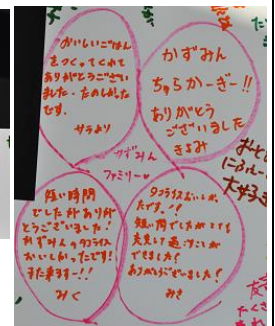 おいしいごはん
をつくってくれて
ありがとうござい
ました。たのしかった
です。
サラより
かずみん
ちゅらかーぎー!!
ありがとう
ございました
きよみ
かずみん
ファミリー♡
短い時間
でしたがありが
とうございました!
かずみんのタコライス
おいしかったです!
また来ますー!!
みく
タコライスおいしかっ
たです!!
短い間でしたがとても
充実して過ごすことが
できました!
ありがとうございました!
みさ